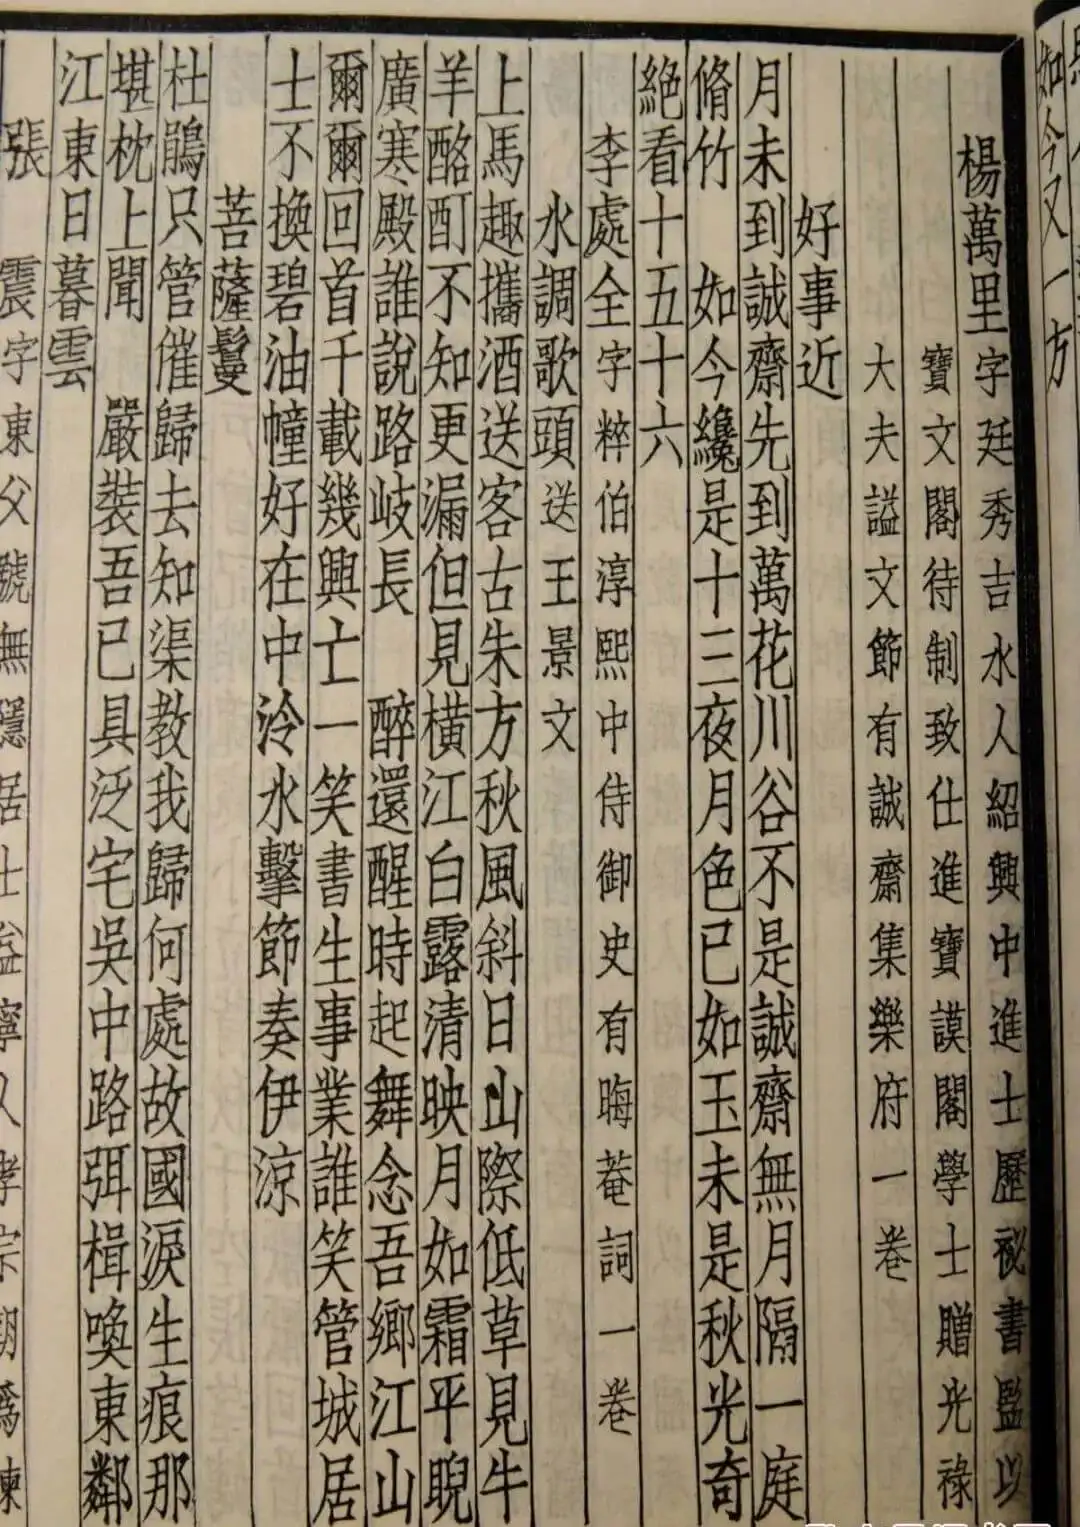 如今又一方
楊萬里字廷秀吉水人紹興中進士歷祕書監以
寶文閣待制致仕進寶謨閣學士贈光祿
大夫謚文節有誠齋集樂府一卷
好事近
月未到誠齋先到萬花川谷不是誠齋無月隔一庭
脩竹 如今纔是十三夜月色已如玉未是秋光奇
絕看十五十六
李處全字粹伯淳熙中侍御史有晦菴詞一卷
水調歌頭送王景文
上馬趣攜酒送客古朱方秋風斜日山際低草見牛
羊酪酊不知更漏但見橫江白露清映月如霜平睨
廣寒殿誰說路岐長 醉還醒時起舞念吾鄉江山
爾爾回首千載幾興亡一笑書生事業誰笑管城居
士不換碧油幢好在中泠水擊節奏伊涼
菩薩鬘
杜鵑只管催歸去知渠教我歸何處故國淚生痕那
堪枕上聞 嚴裝吾已具泛宅吳中路弭楫喚東鄰
江東日暮雲
張震字東父號無隱居士益寧人孝宗朝爲諫